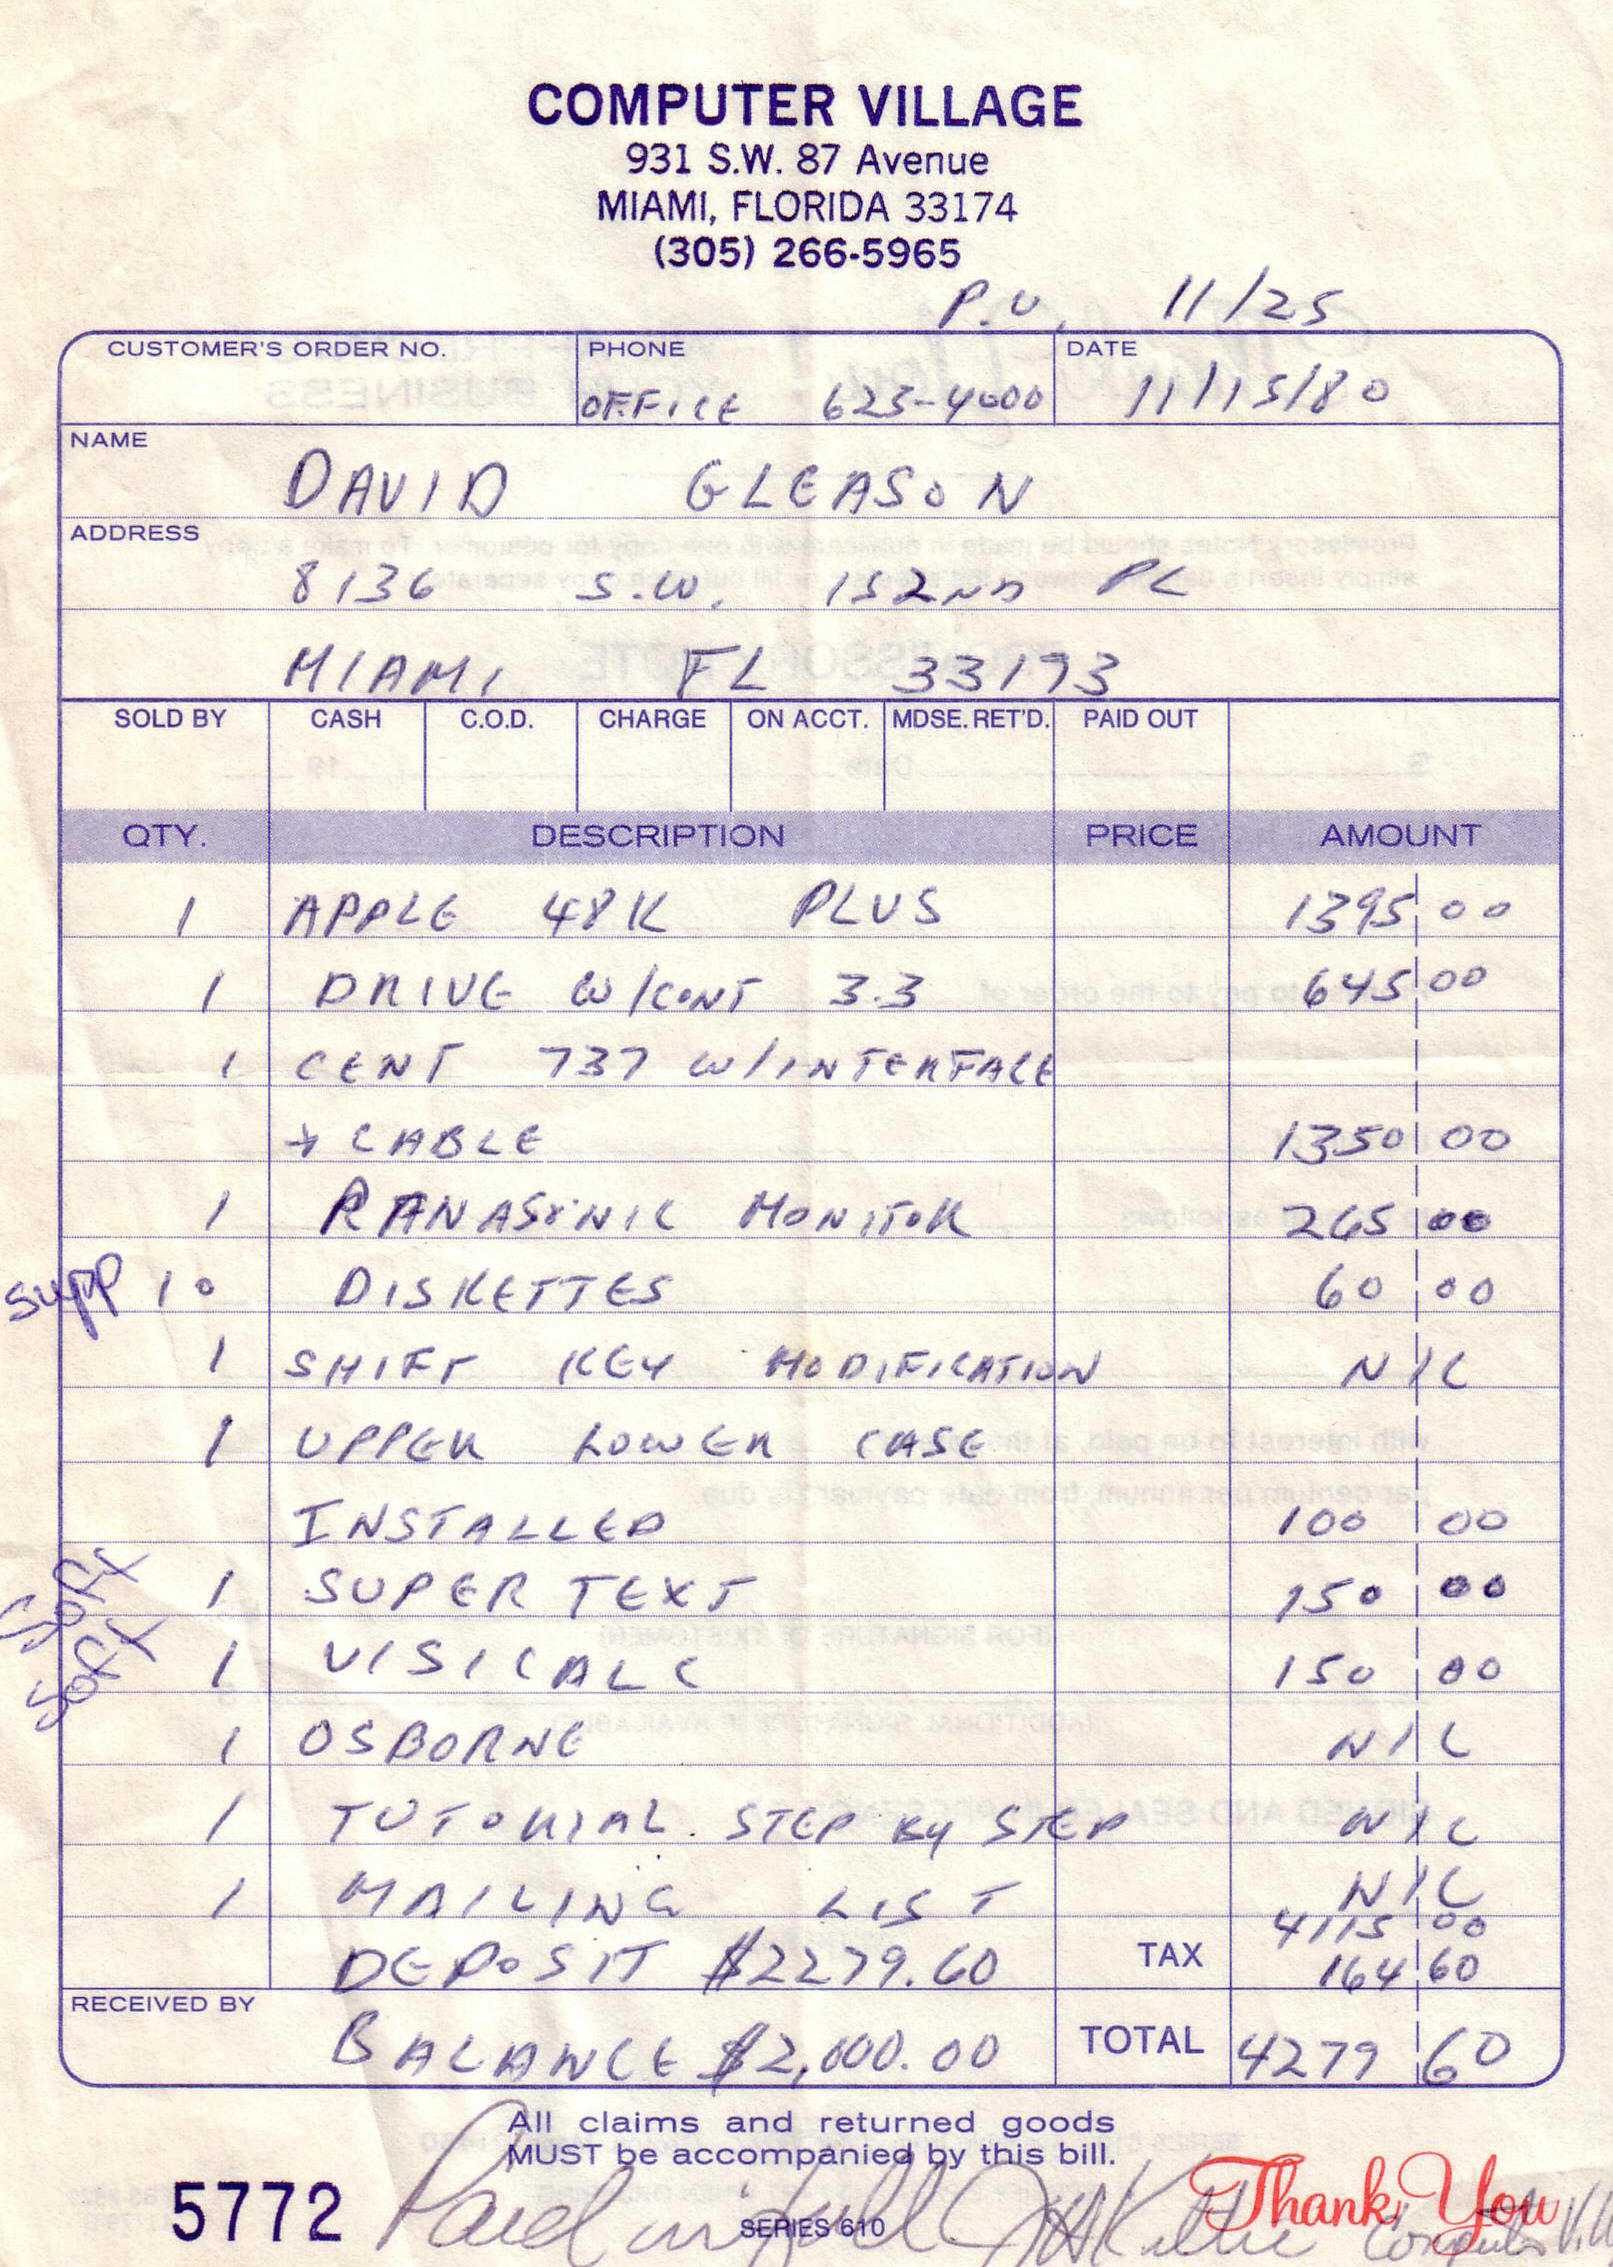 COMPUTER VILLAGE
931 S.W. 87 Avenue
MIAMI, FLORIDA 33174
(305) 266-5965
P.U. 11/25
CUSTOMER'S ORDER NO. PHONE DATE
OFFICE 623-4000 11/15/80
NAME
DAVID GLEASON
ADDRESS
8136 S.W. 152ND PL
MIAMI, FL 33193
SOLD BY CASH C.O.D. CHARGE ON ACCT. MDSE. RET'D. PAID OUT
QTY. DESCRIPTION PRICE AMOUNT
1 APPLE 48K PLUS 1395 00
1 DRIVE W/CONT 3.3 645 00
1 CENT 737 W/INTERFACE
+ CABLE 1350 00
1 PANASONIC MONITOR 265 00
supp 10 DISKETTES 60 00
1 SHIFT KEY MODIFICATION N/C
1 UPPER LOWER CASE
INSTALLED 100 00
soft 1 SUPER TEXT 150 00
soft 1 VISICALC 150 00
1 OSBORNE N/C
1 TUTORIAL. STEP BY STEP N/C
1 MAILING LIST N/C
4115 00
DEPOSIT $2279.60 TAX 164 60
RECEIVED BY
BALANCE $2,000.00 TOTAL 4279 60
All claims and returned goods
MUST be accompanied by this bill.
5772 Paid in full SERIES 610 Thank You
Computer